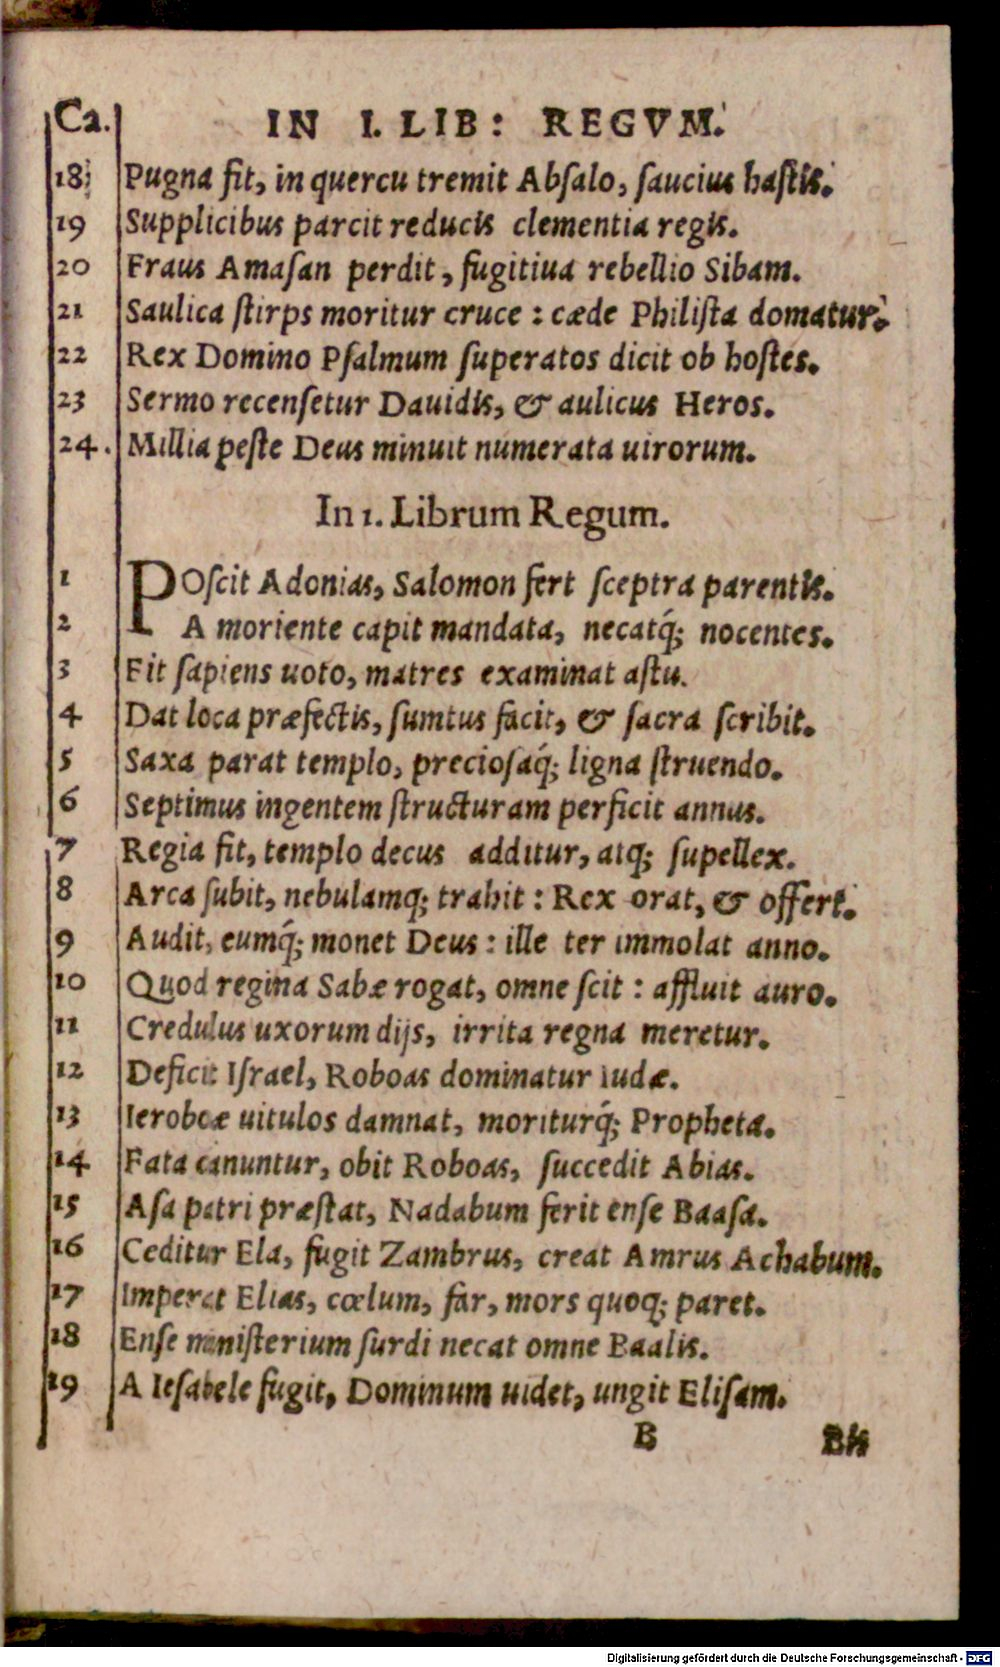 Ca. IN I. LIB: REGVM.
18 Pugna fit, in quercu tremit Absalo, saucius hastis.
19 Supplicibus parcit reducis clementia regis.
20 Fraus Amasan perdit, fugitiua rebellio Sibam.
21 Saulica stirps moritur cruce : cæde Philista domatur.
22 Rex Domino Psalmum superatos dicit ob hostes.
23 Sermo recensetur Dauidis, & aulicus Heros.
24. Millia peste Deus minuit numerata uirorum.
In 1. Librum Regum.
1 POscit Adonias, Salomon fert sceptra parentis.
2 A moriente capit mandata, necatq́; nocentes.
3 Fit sapiens uoto, matres examinat astu.
4 Dat loca præfectis, sumtus facit, & sacra scribit.
5 Saxa parat templo, preciosaq́; ligna struendo.
6 Septimus ingentem structuram perficit annus.
7 Regia fit, templo decus additur, atq; supellex.
8 Arca subit, nebulamq; trahit : Rex orat, & offert.
9 Audit, eumq́; monet Deus : ille ter immolat anno.
10 Quod regina Sabæ rogat, omne scit : affluit auro.
11 Credulus uxorum dijs, irrita regna meretur.
12 Deficit Israel, Roboas dominatur Iudæ.
13 Ieroboæ uitulos damnat, moriturq́; Propheta.
14 Fata canuntur, obit Roboas, succedit Abias.
15 Asa patri præstat, Nadabum ferit ense Baasa.
16 Ceditur Ela, fugit Zambrus, creat Amrus Achabum.
17 Imperat Elias, cœlum, far, mors quoq; paret.
18 Ense ministerium surdi necat omne Baalis.
19 A Iesabele fugit, Dominum uidet, ungit Elisam.
B Bis
Digitalisierung gefördert durch die Deutsche Forschungsgemeinschaft - DFG